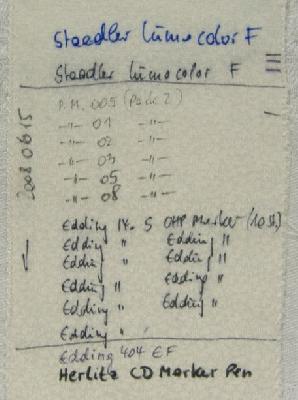 Staedler Lumocolor F
Staedler Lumocolor F
P.M. 005 (Pack 2)
-"- 01 -"-
-"- 02 -"-
-"- 03 -"-
-"- 05 -"-
-"- 08 -"-
20080615
Edding 14. S OHP Marker (10 St.)
Edding " Edding "
Edding " Edding "
Edding " Edding "
Edding " Edding "
Edding "
Edding 404 EF
Herlitz CD Marker Pen